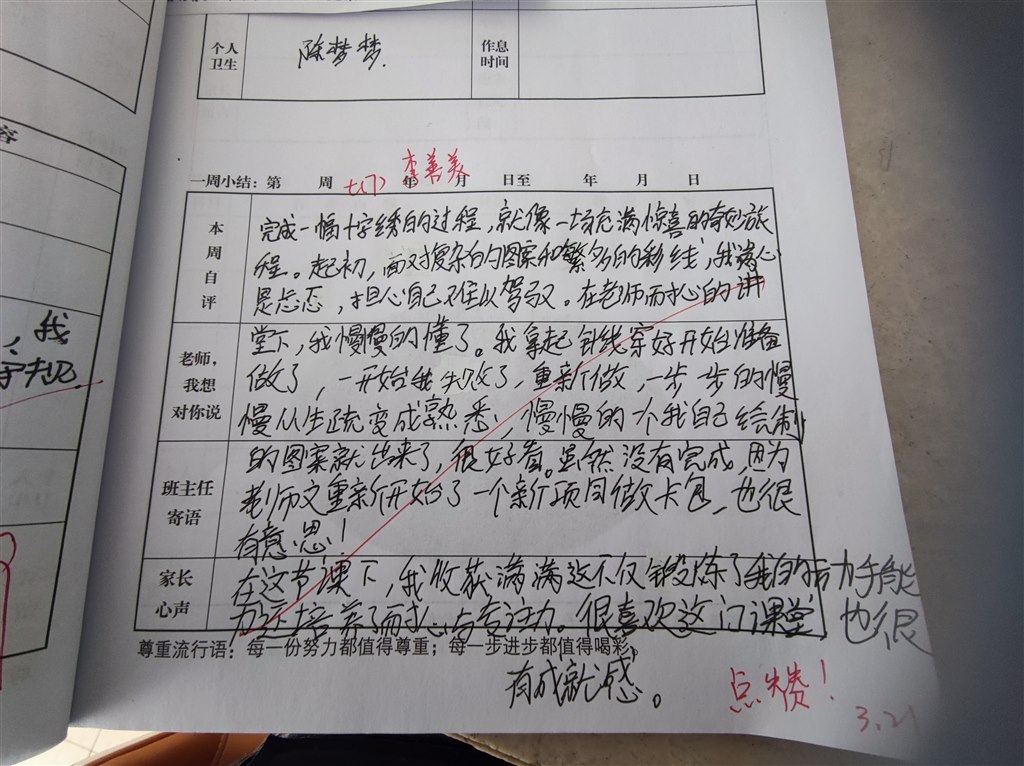 容
，我
个人卫生 陈梦梦. 作息时间
李善美
一周小结：第 周 七(7) 年 月 日至 年 月 日
本周自评
完成一幅十字绣的过程，就像一场充满惊喜的奇妙旅
程。起初，面对复杂的图案和繁多的彩线，我满心
是忐忑，担心自己难以驾驭。在老师耐心的讲
老师，我想对你说
堂下，我慢慢的懂了。我拿起针线穿好开始准备
做了，一开始我失败了，重新做，一步一步的慢
慢从生疏变成熟悉，慢慢的一个我自己绘制
班主任寄语
的图案就出来了，很好看。虽然没有完成，因为
老师又重新开始了一个新项目做卡包，也很
有意思！
家长心声
在这节课下，我收获满满这不仅锻炼了我的动手能
力还培养了耐心与专注力。很喜欢这门课堂 也很
尊重流行语：每一份努力都值得尊重；每一步进步都值得喝彩。
有成就感。
点赞！
3.21